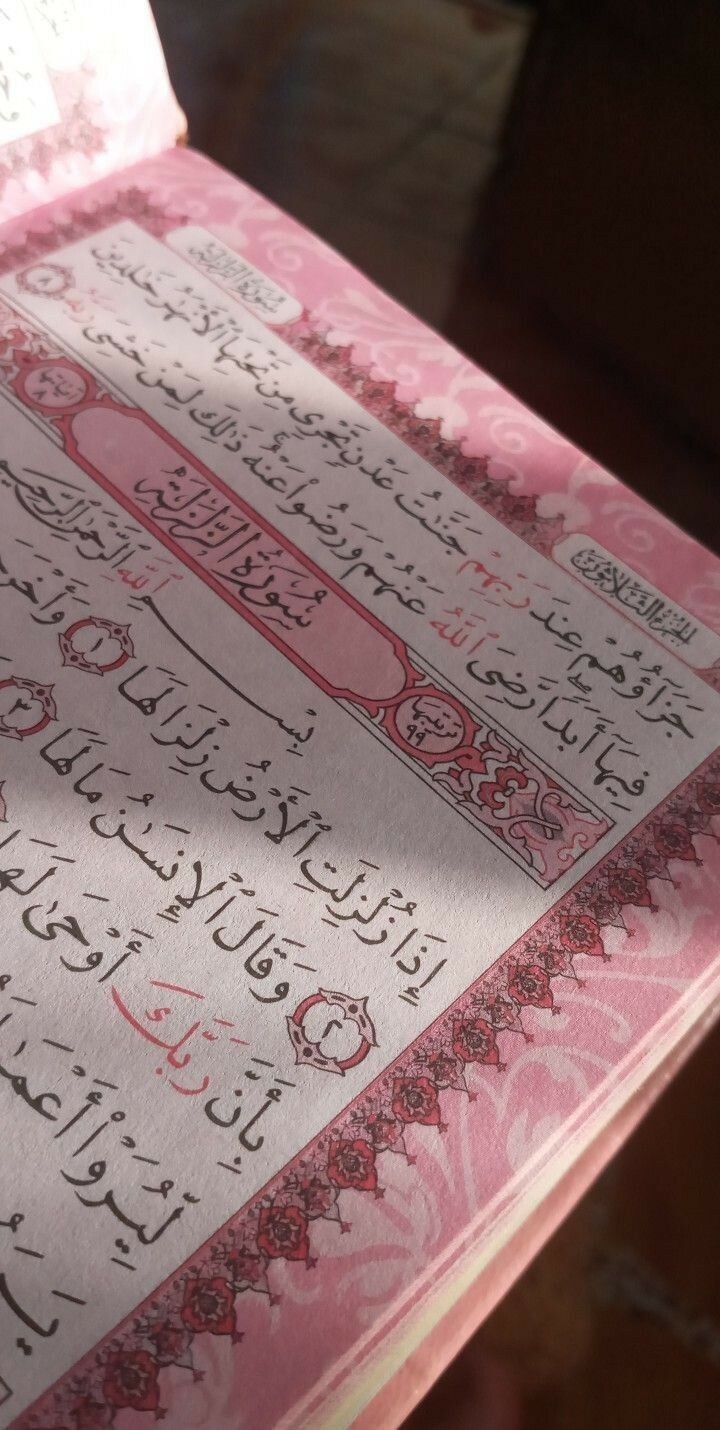 سُورَةُ الزَّلْزَلَةِ
الجزء الثلاثون
جَزَآؤُهُمْ عِندَ رَبِّهِمْ جَنَّـٰتُ عَدْنٍ تَجْرِى مِن تَحْتِهَا ٱلْأَنْهَـٰرُ خَـٰلِدِينَ
فِيهَآ أَبَدًا رَّضِىَ ٱللَّهُ عَنْهُمْ وَرَضُوا۟ عَنْهُ ذَٰلِكَ لِمَنْ خَشِىَ رَبَّهُۥ ٨
ترتيبها ٩٩
سُورَةُ الزَّلْزَلَةِ
آياتها ٨
بِسْمِ ٱللَّهِ ٱلرَّحْمَـٰنِ ٱلرَّحِيمِ
إِذَا زُلْزِلَتِ ٱلْأَرْضُ زِلْزَالَهَا ١ وَأَخْرَجَ
٢ وَقَالَ ٱلْإِنسَـٰنُ مَا لَهَا ٣
بِأَنَّ رَبَّكَ أَوْحَىٰ لَهَا
لِّيُرَوْا۟ أَعْمَـٰ